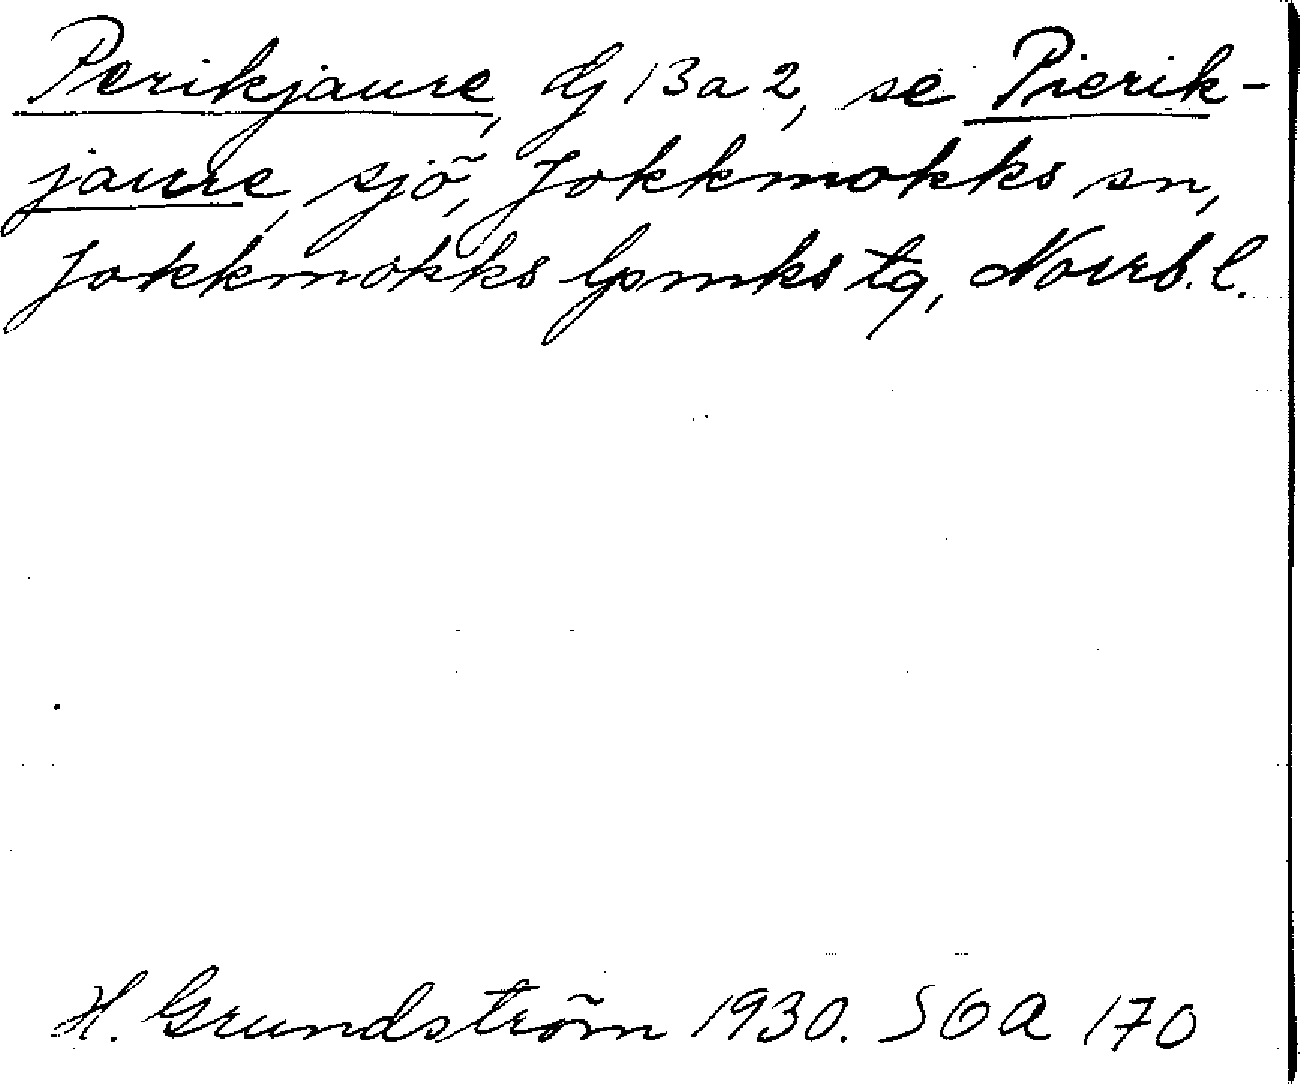 Perikjaure, dj 13 a 2, se Pierik-
jaure, sjö, Jokkmokks sn,
Jokkmokks lpmks tg, Norrb. l.
H. Grundström 1930. SOA 170